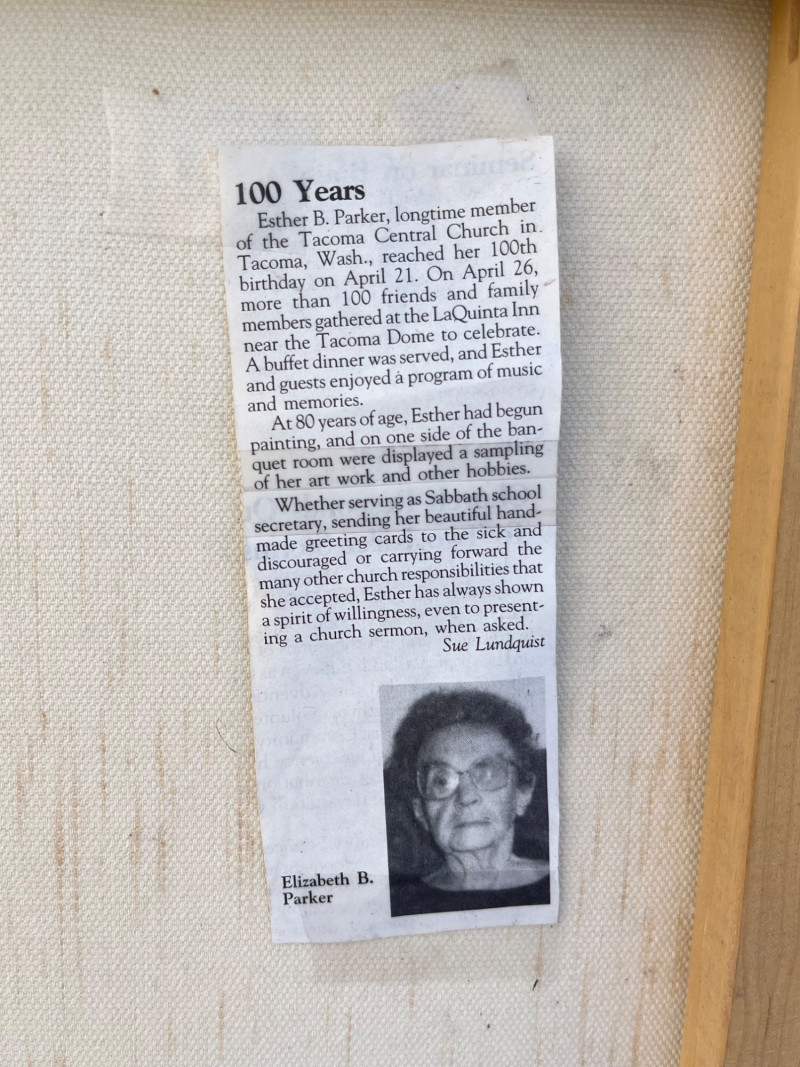 100 Years
Esther B. Parker, longtime member
of the Tacoma Central Church in
Tacoma, Wash., reached her 100th
birthday on April 21. On April 26,
more than 100 friends and family
members gathered at the LaQuinta Inn
near the Tacoma Dome to celebrate.
A buffet dinner was served, and Esther
and guests enjoyed a program of music
and memories.
At 80 years of age, Esther had begun
painting, and on one side of the ban-
quet room were displayed a sampling
of her art work and other hobbies.
Whether serving as Sabbath school
secretary, sending her beautiful hand-
made greeting cards to the sick and
discouraged or carrying forward the
many other church responsibilities that
she accepted, Esther has always shown
a spirit of willingness, even to present-
ing a church sermon, when asked.
Sue Lundquist
Elizabeth B.
Parker